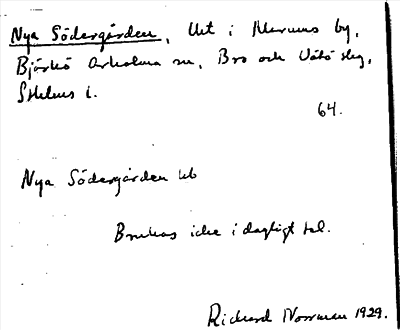 Nya Södergården, Utt i Marums by,
Björkö Arholma sn, Bro och Vätö skg,
Sthlms l.
64.
Nya Södergården hb
Brukas icke i dagligt tal.
Richard Norrman 1929.